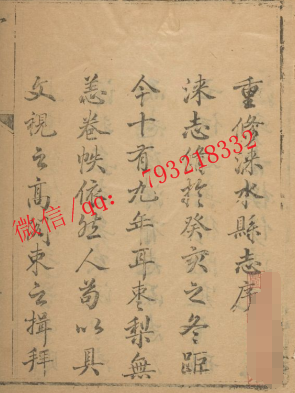 重修淶水縣志序
淶志修於癸亥之冬距
今十有九年耳棗梨無
恙卷帙依然人茍以具
文視之高閣束之揖拜
微信/qq：793218332